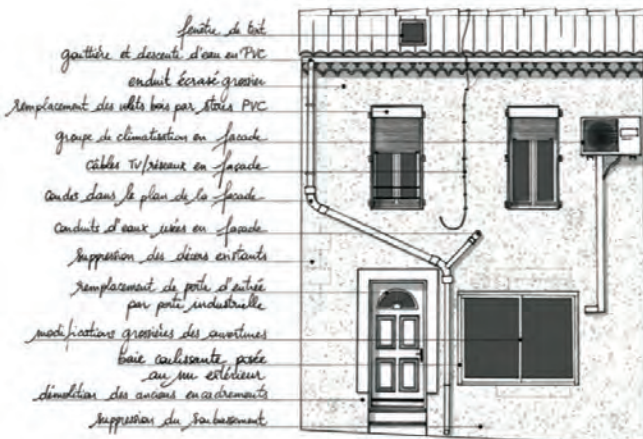 fenêtre de toit
gouttière et descente d'eau en PVC
enduit écrasé grossier
remplacement des volets bois par stores PVC
groupe de climatisation en façade
câbles TV/réseaux en façade
coudes dans le plan de la façade
conduits d'eaux usées en façade
suppression des décors existants
remplacement de porte d'entrée
par porte industrielle
modifications grossières des ouvertures
baie coulissante posée
au nu extérieur
démolition des anciens encadrements
suppression du soubassement